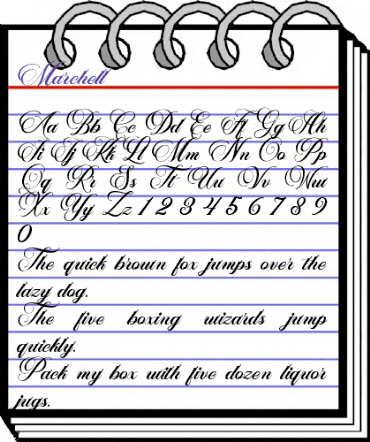 Marchell
Aa Bb Cc Dd Ee Ff Gg Hh
Ii Jj Kk Ll Mm Nn Oo Pp
Qq Rr Ss Tt Uu Vv Ww
Xx Yy Zz 1 2 3 4 5 6 7 8 9
0
The quick brown fox jumps over the
lazy dog.
The five boxing wizards jump
quickly.
Pack my box with five dozen liquor
jugs.